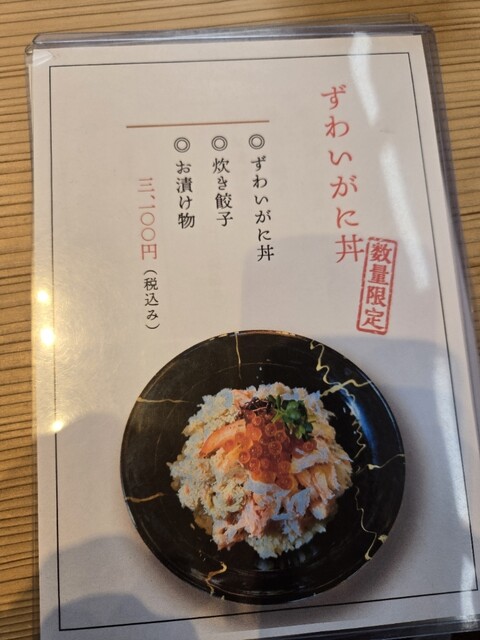 ずわいがに丼
数量限定
◎ずわいがに丼
◎炊き餃子
◎お漬け物
三、一〇〇円（税込み）